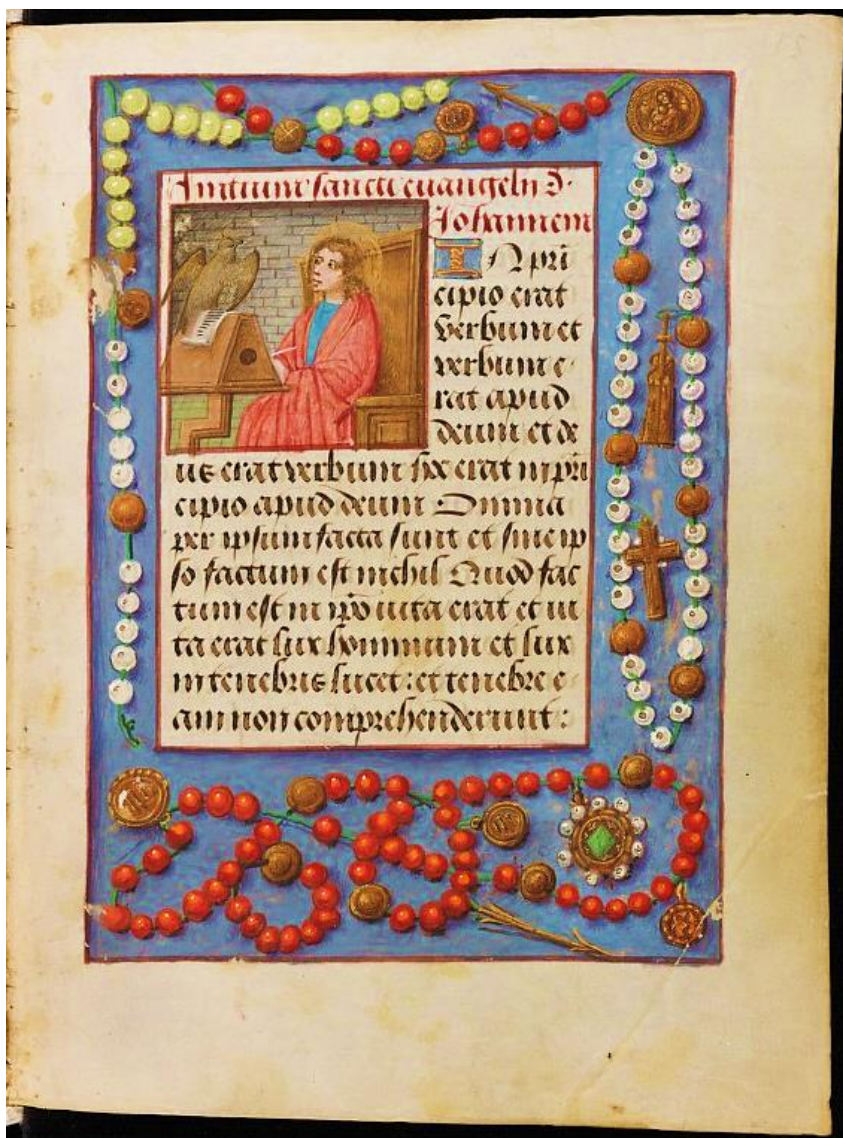 Initium sancti euangelii s.
Iohannem
IN pri
cipio erat
verbum et
verbum e
rat apud
deum et de
us erat verbum hoc erat in pri
cipio apud deum Omnia
per ipsum facta sunt et sine ip
so factum est nichil Quod fac
tum est in ipo uita erat et ui
ta erat lux hominum et lux
in tenebris lucet : et tenebre e
am non comprehenderunt :